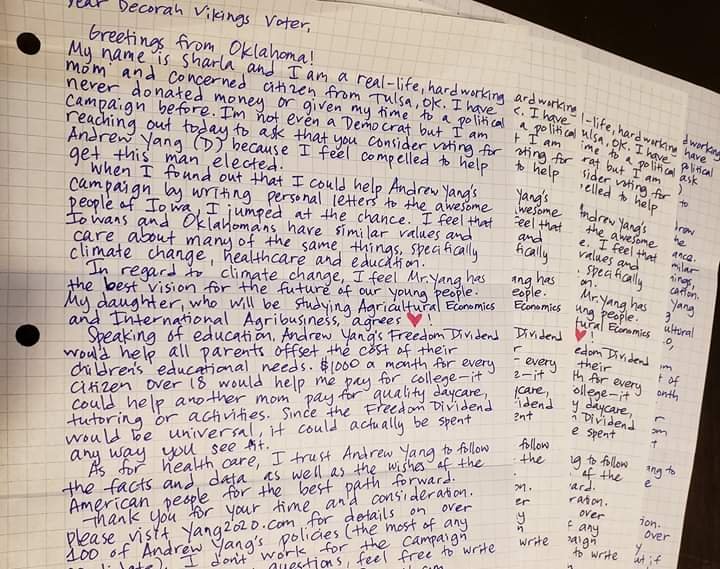 Dear Decorah Vikings Voter,
Greetings from Oklahoma!
My name is Sharla and I am a real-life, hardworking
mom and concerned citizen from Tulsa, OK. I have
never donated money or given my time to a political
campaign before. I'm not even a Democrat but I am
reaching out today to ask that you consider voting for
Andrew Yang (D) because I feel compelled to help
get this man elected.
When I found out that I could help Andrew Yang's
campaign by writing personal letters to the awesome
people of Iowa, I jumped at the chance. I feel that
Iowans and Oklahomans have similar values and
care about many of the same things, specifically
climate change, healthcare and education.
In regard to climate change, I feel Mr. Yang has
the best vision for the future of our young people.
My daughter, who will be studying Agricultural Economics
and International Agribusiness, agrees ♥!
Speaking of education, Andrew Yang's Freedom Dividend
would help all parents offset the cost of their
children's educational needs. $1000 a month for every
citizen over 18 would help me pay for college—it
could help another mom pay for quality daycare,
tutoring or activities. Since the Freedom Dividend
would be universal, it could actually be spent
any way you see fit.
As for health care, I trust Andrew Yang to follow
the facts and data as well as the wishes of the
American people for the best path forward.
Thank you for your time and consideration.
Please visit Yang2020.com for details on over
100 of Andrew Yang's policies (the most of any
I don't work for the campaign
questions, feel free to write